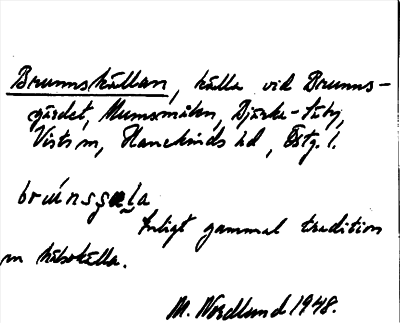 Brunnskällan, källa vid Brunns-
gärdet, Mumsmålen, Djurke-Täby,
Vists sn, Hanekinds hd, Östg. l.
brúnsgəla
Enligt gammal tradition
en hälsokälla.
M. Nordlund 1948.